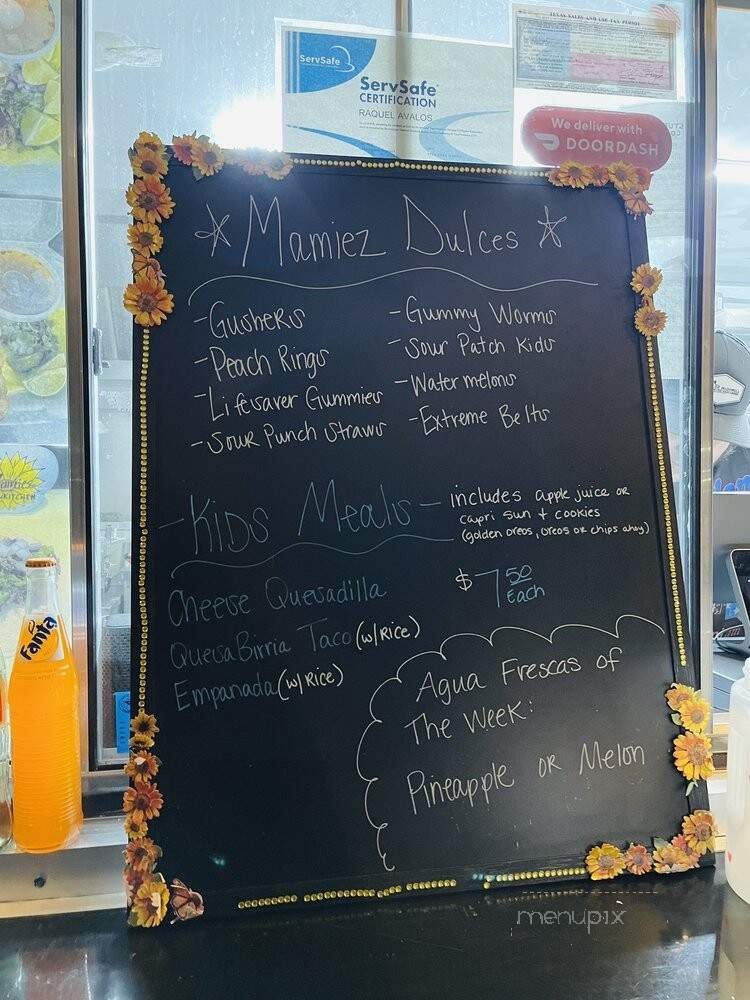 ServSafe
ServSafe
CERTIFICATION
RAQUEL AVALOS
TEXAS SALES AND USE TAX PERMIT
We deliver with
DOORDASH
Mamiez Dulces
- Gushers
- Peach Rings
- Lifesaver Gummies
- Sour Punch Straws
- Gummy Worms
- Sour Patch Kids
- Watermelons
- Extreme Belts
- Kids Meals -
includes apple juice or
capri sun + cookies
(golden oreos, oreos or chips ahoy)
$7.50 Each
Cheese Quesadilla
QuesaBirria Taco (w/Rice)
Empanada (w/Rice)
Agua Frescas of
The Week:
Pineapple or Melon
Fanta
KITCHEN
menupix